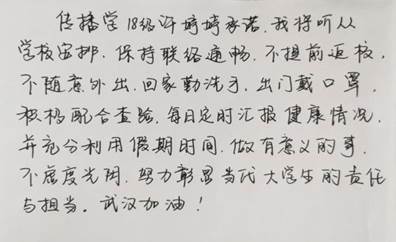 传播学18级许婷婷承诺,我将听从
学校安排,保持联络通畅,不提前返校,
不随意外出,回家勤洗手,出门戴口罩,
积极配合查验,每日定时汇报健康情况,
并充分利用假期时间,做有意义的事,
不虚度光阴,努力彰显当代大学生的责任
与担当。武汉加油!